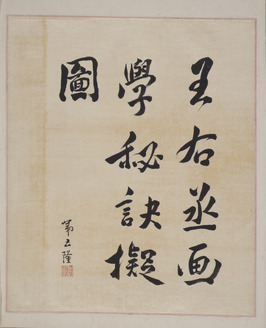 王右丞画
學秘訣擬
圖